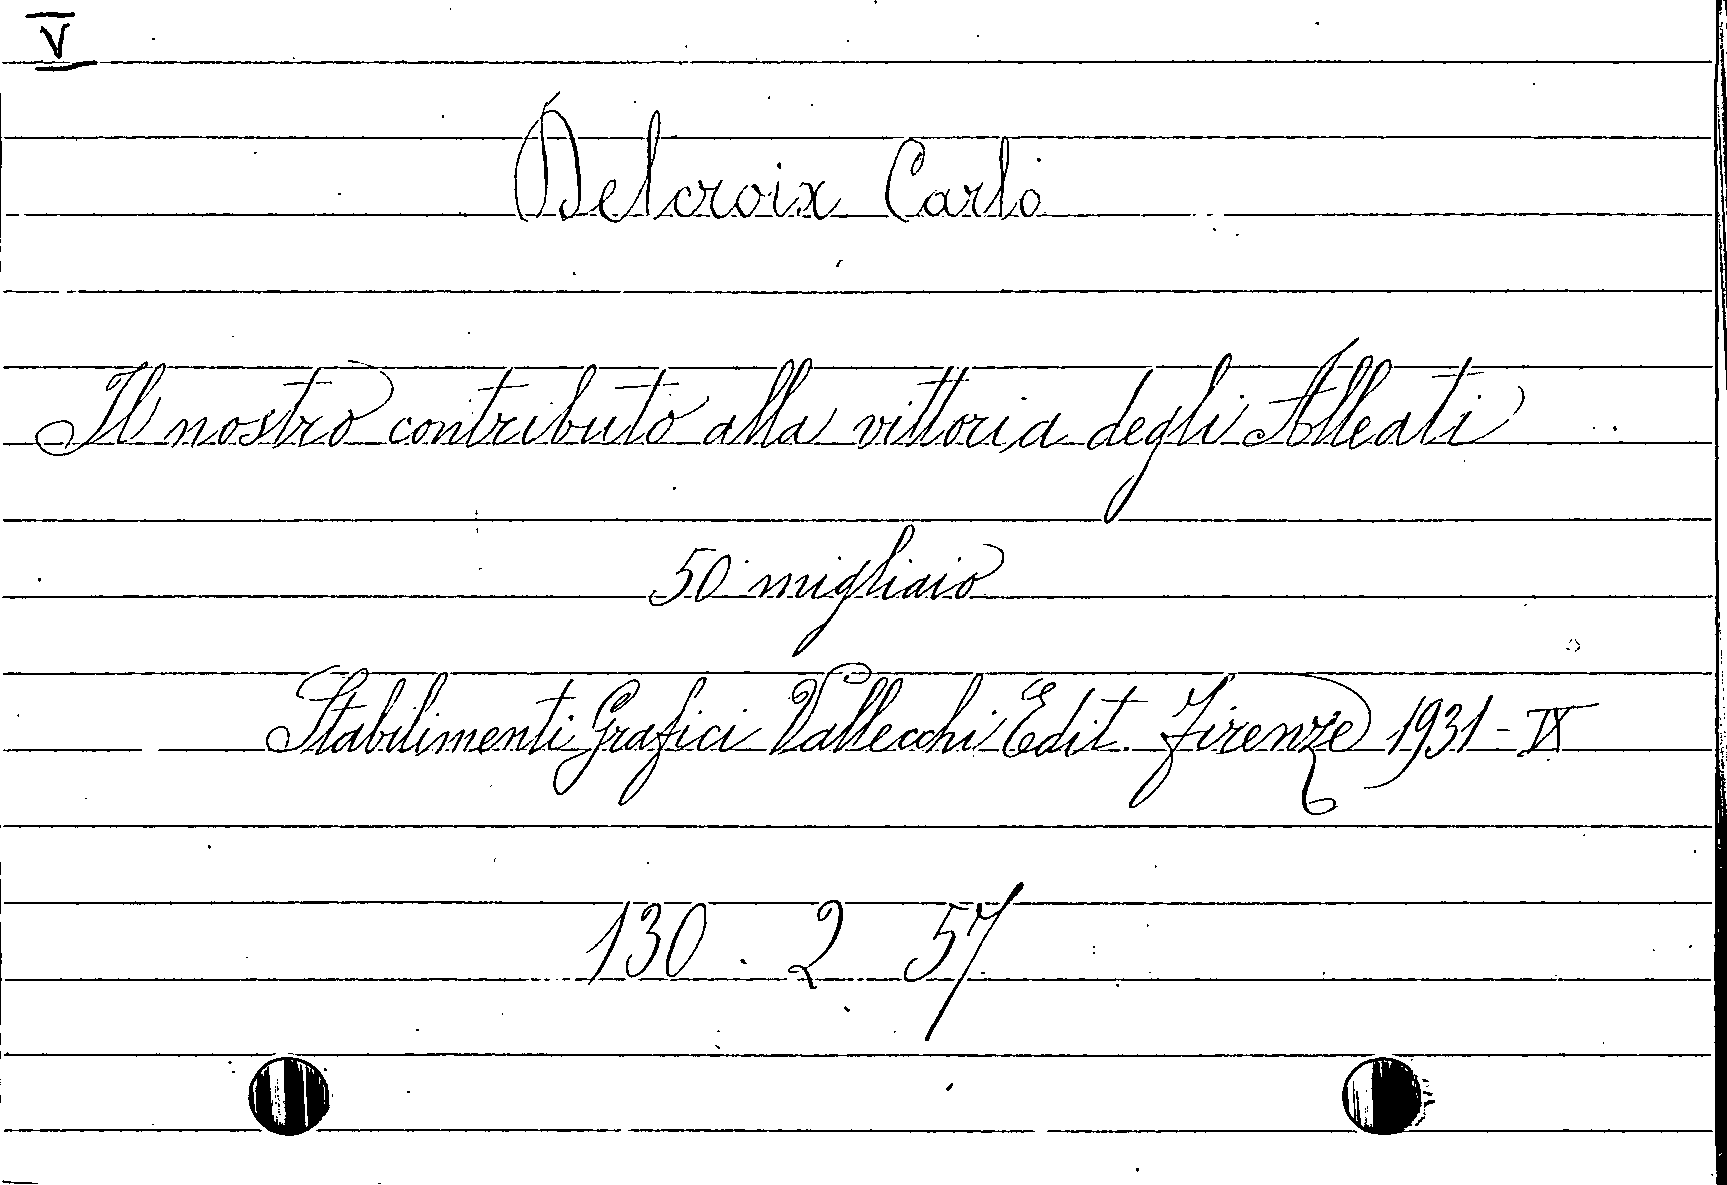 V
Delcroix Carlo
Il nostro contributo alla vittoria degli Alleati
50 migliaio
Stabilimenti Grafici Vallecchi Edit. Firenze 1931 - IX
130 . 2 57